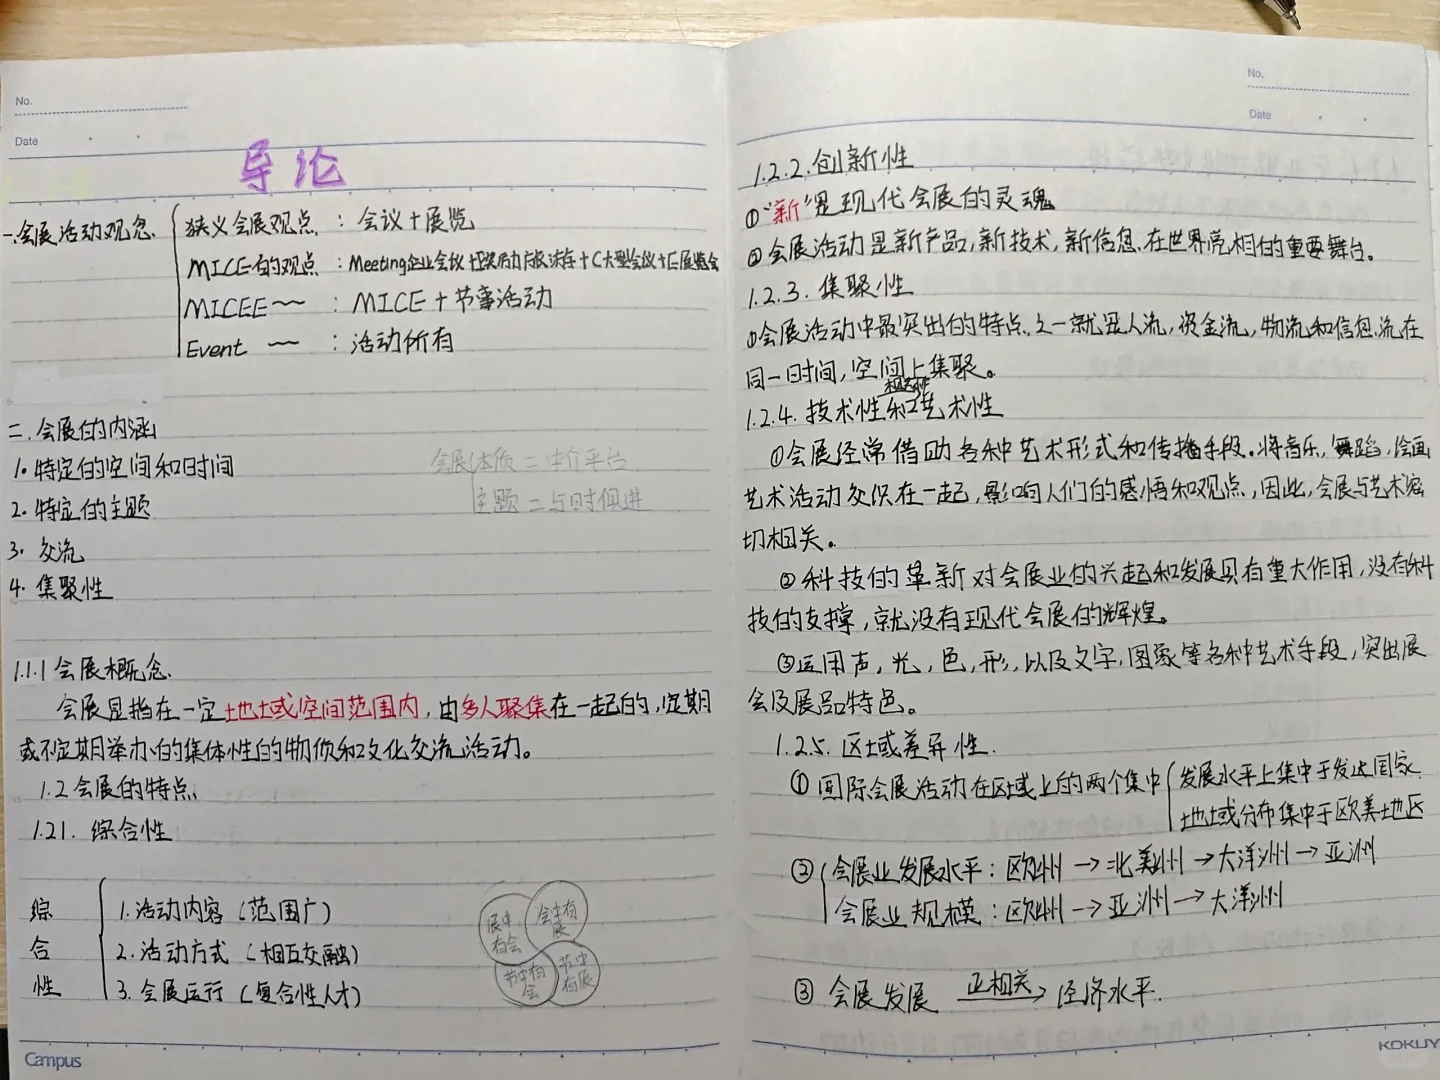 No.
Date
导论
一.会展活动观念
狭义会展观点：会议+展览
MICE的观点：Meeting企业会议+I奖励旅游+C大型会议+E展览会
MICEE~~：MICE+节事活动
Event ~~：活动所有
二.会展的内涵
1.特定的空间和时间
2.特定的主题
3.交流
4.集聚性
会展本质=中介平台
主题=与时俱进
1.1.1会展概念.
会展是指在一定地域或空间范围内，由多人聚集在一起的，定期
或不定期举办的集体性的物质和文化交流活动。
1.2会展的特点.
1.21.综合性
综合性
1.活动内容（范围广）
2.活动方式（相互交融）
3.会展运行（复合性人才）
展中有会
会中有展
节中有会
节中有展
Campus
No.
Date
1.2.2.创新性
①“新”是现代会展的灵魂
②会展活动是新产品，新技术，新信息.在世界亮相的重要舞台。
1.2.3.集聚性
①会展活动中最突出的特点.之一就是人流，资金流，物流和信息.流在
同一时间，空间上集聚。
1.2.4.技术性和艺术性
①会展经常借助各种艺术形式和传播手段。将音乐，舞蹈，绘画
艺术活动交织在一起，影响人们的感悟和观点，因此，会展与艺术密
切相关。
②科技的革新对会展业的兴起和发展具有重大作用，没有科
技的支撑，就没有现代会展的辉煌。
③运用声，光，色，形，以及文字，图象等各种艺术手段，突出展
会及展品特色。
1.2.5.区域差异性.
①国际会展活动在区域上的两个集中
发展水平上集中于发达国家.
地域分布集中于欧美地区
②
会展业发展水平：欧州→北美州→大洋州→亚洲
会展业规模：欧州→亚洲→大洋州
③会展发展 正相关→ 经济水平.
KOKUY